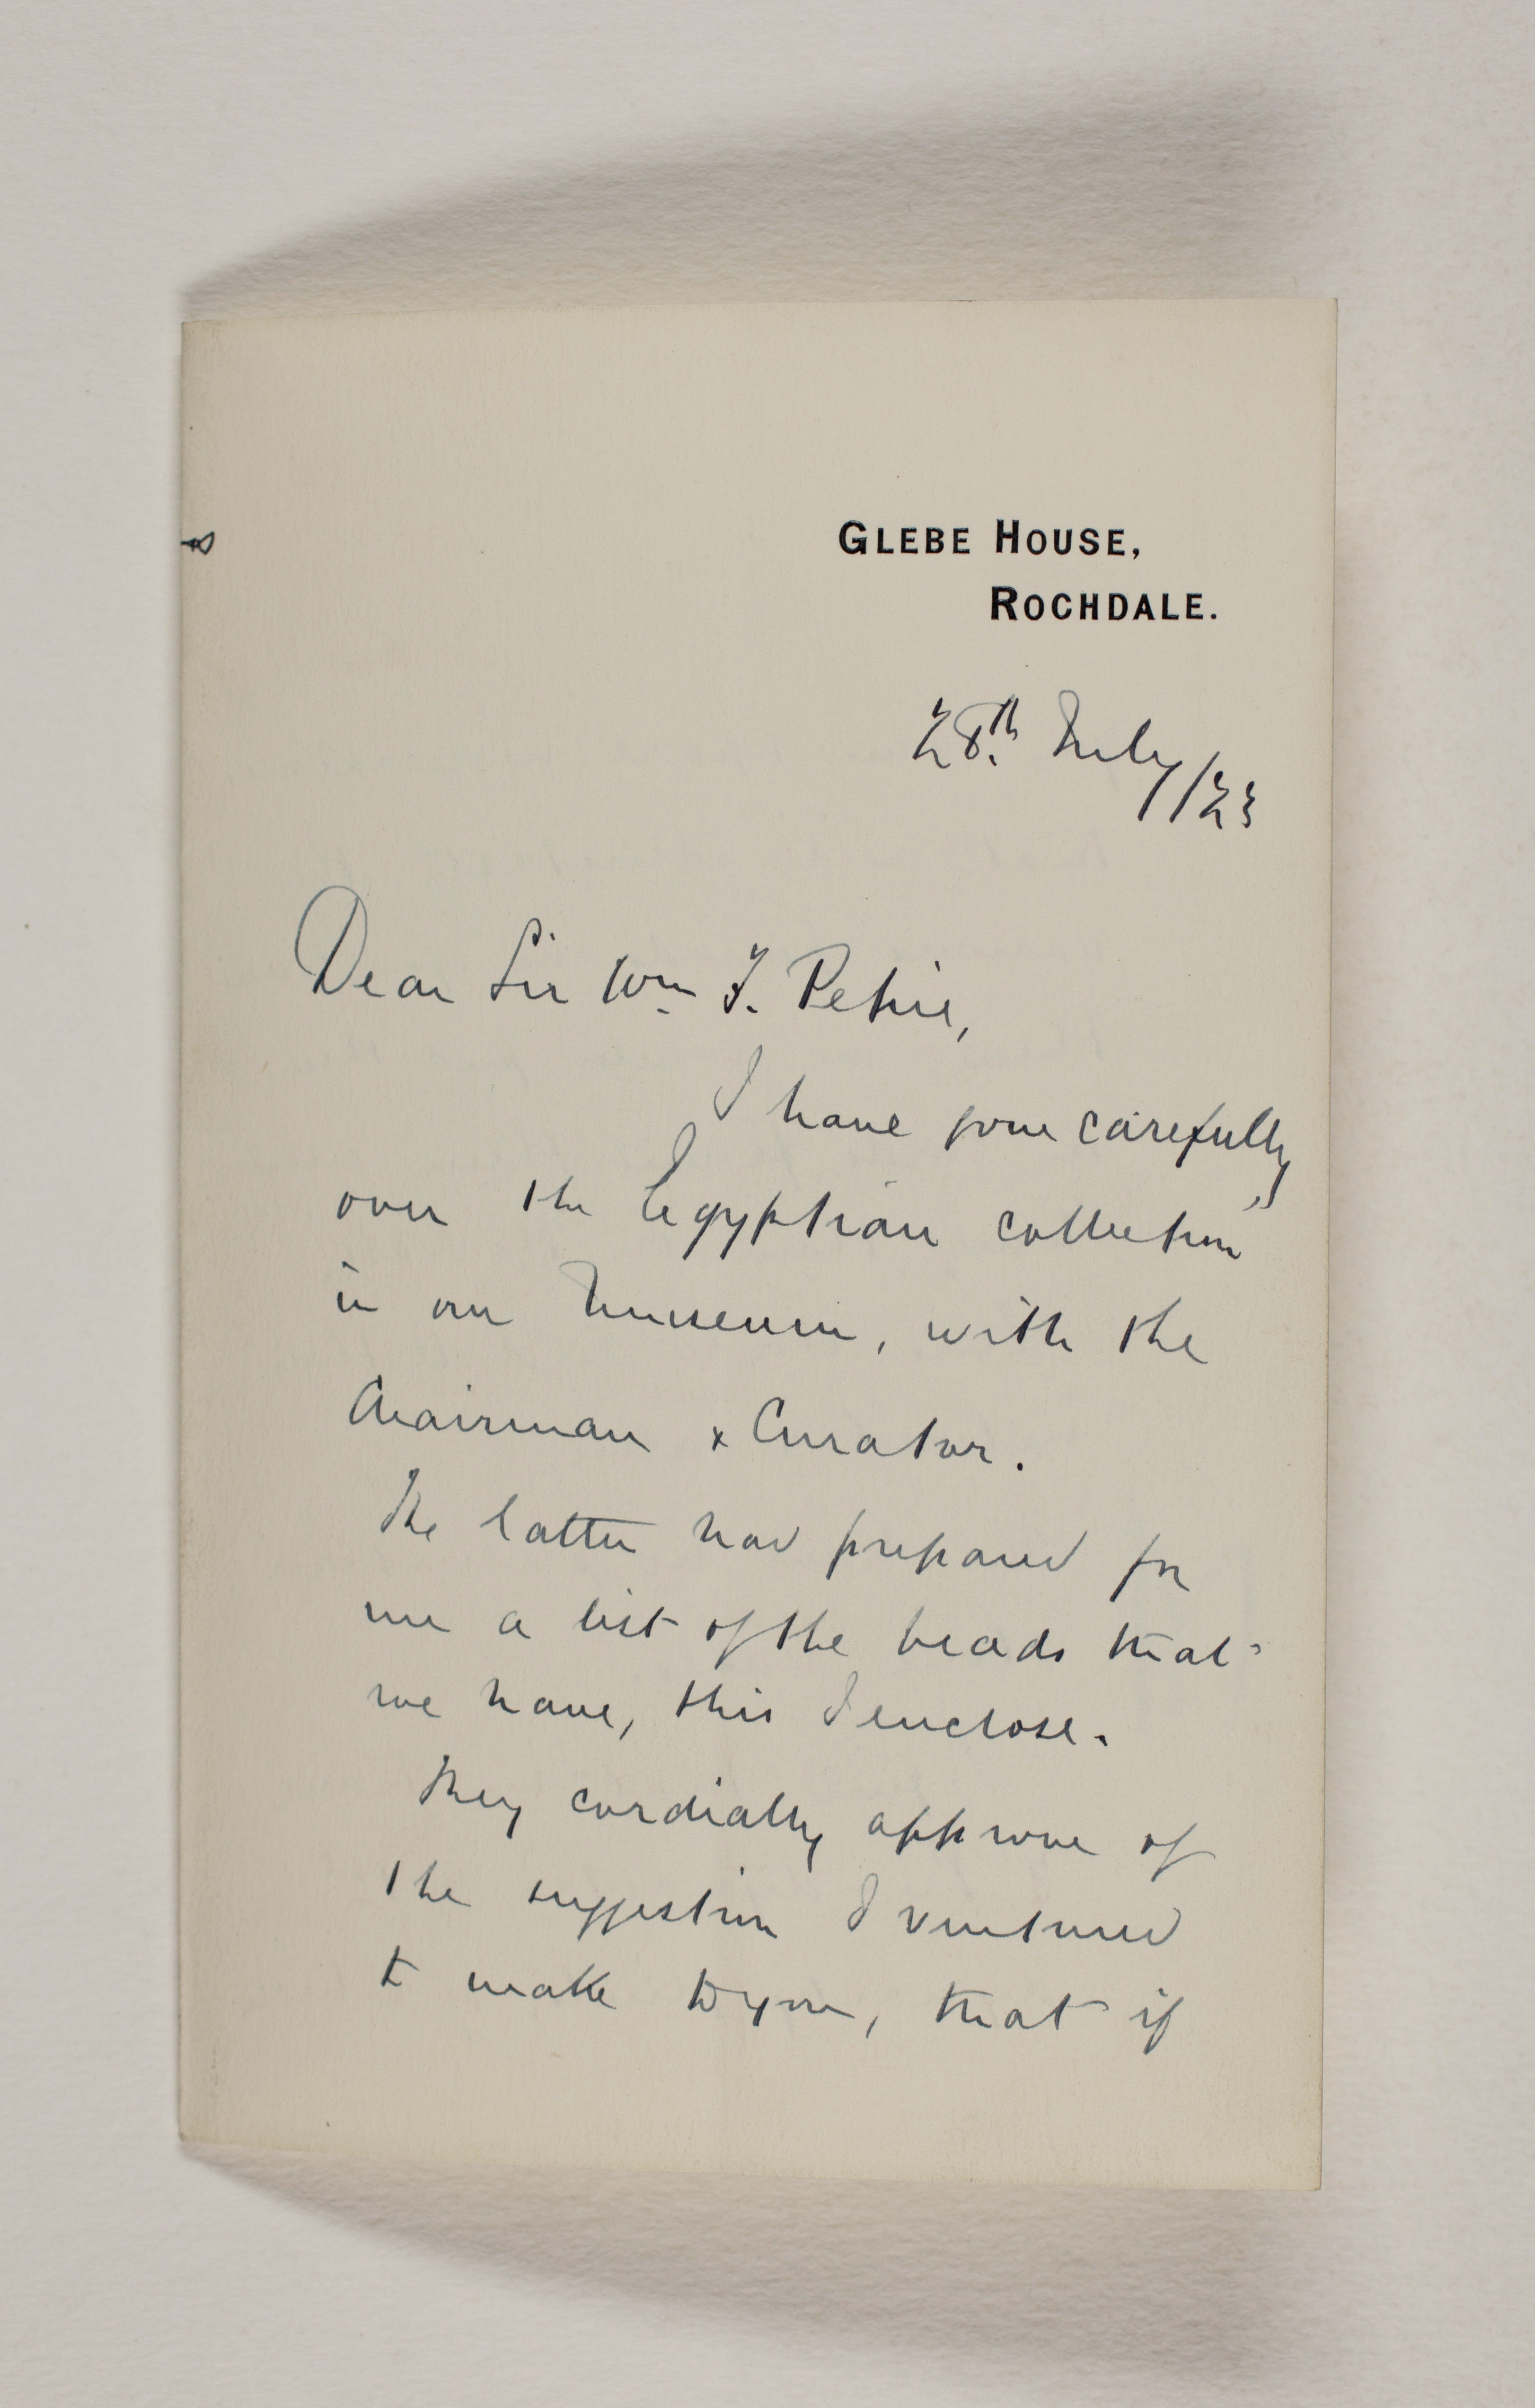 GLEBE HOUSE,
ROCHDALE.
28th. July/23
Dear Sir Wm. F. Petrie,
I have gone carefully
over the Egyptian collection
in our Museum, with the
Chairman & Curator.
The latter has prepared for
me a list of the beads that
we have, this I enclose.
They cordially approve of
the suggestion I ventured
to make to you, that if